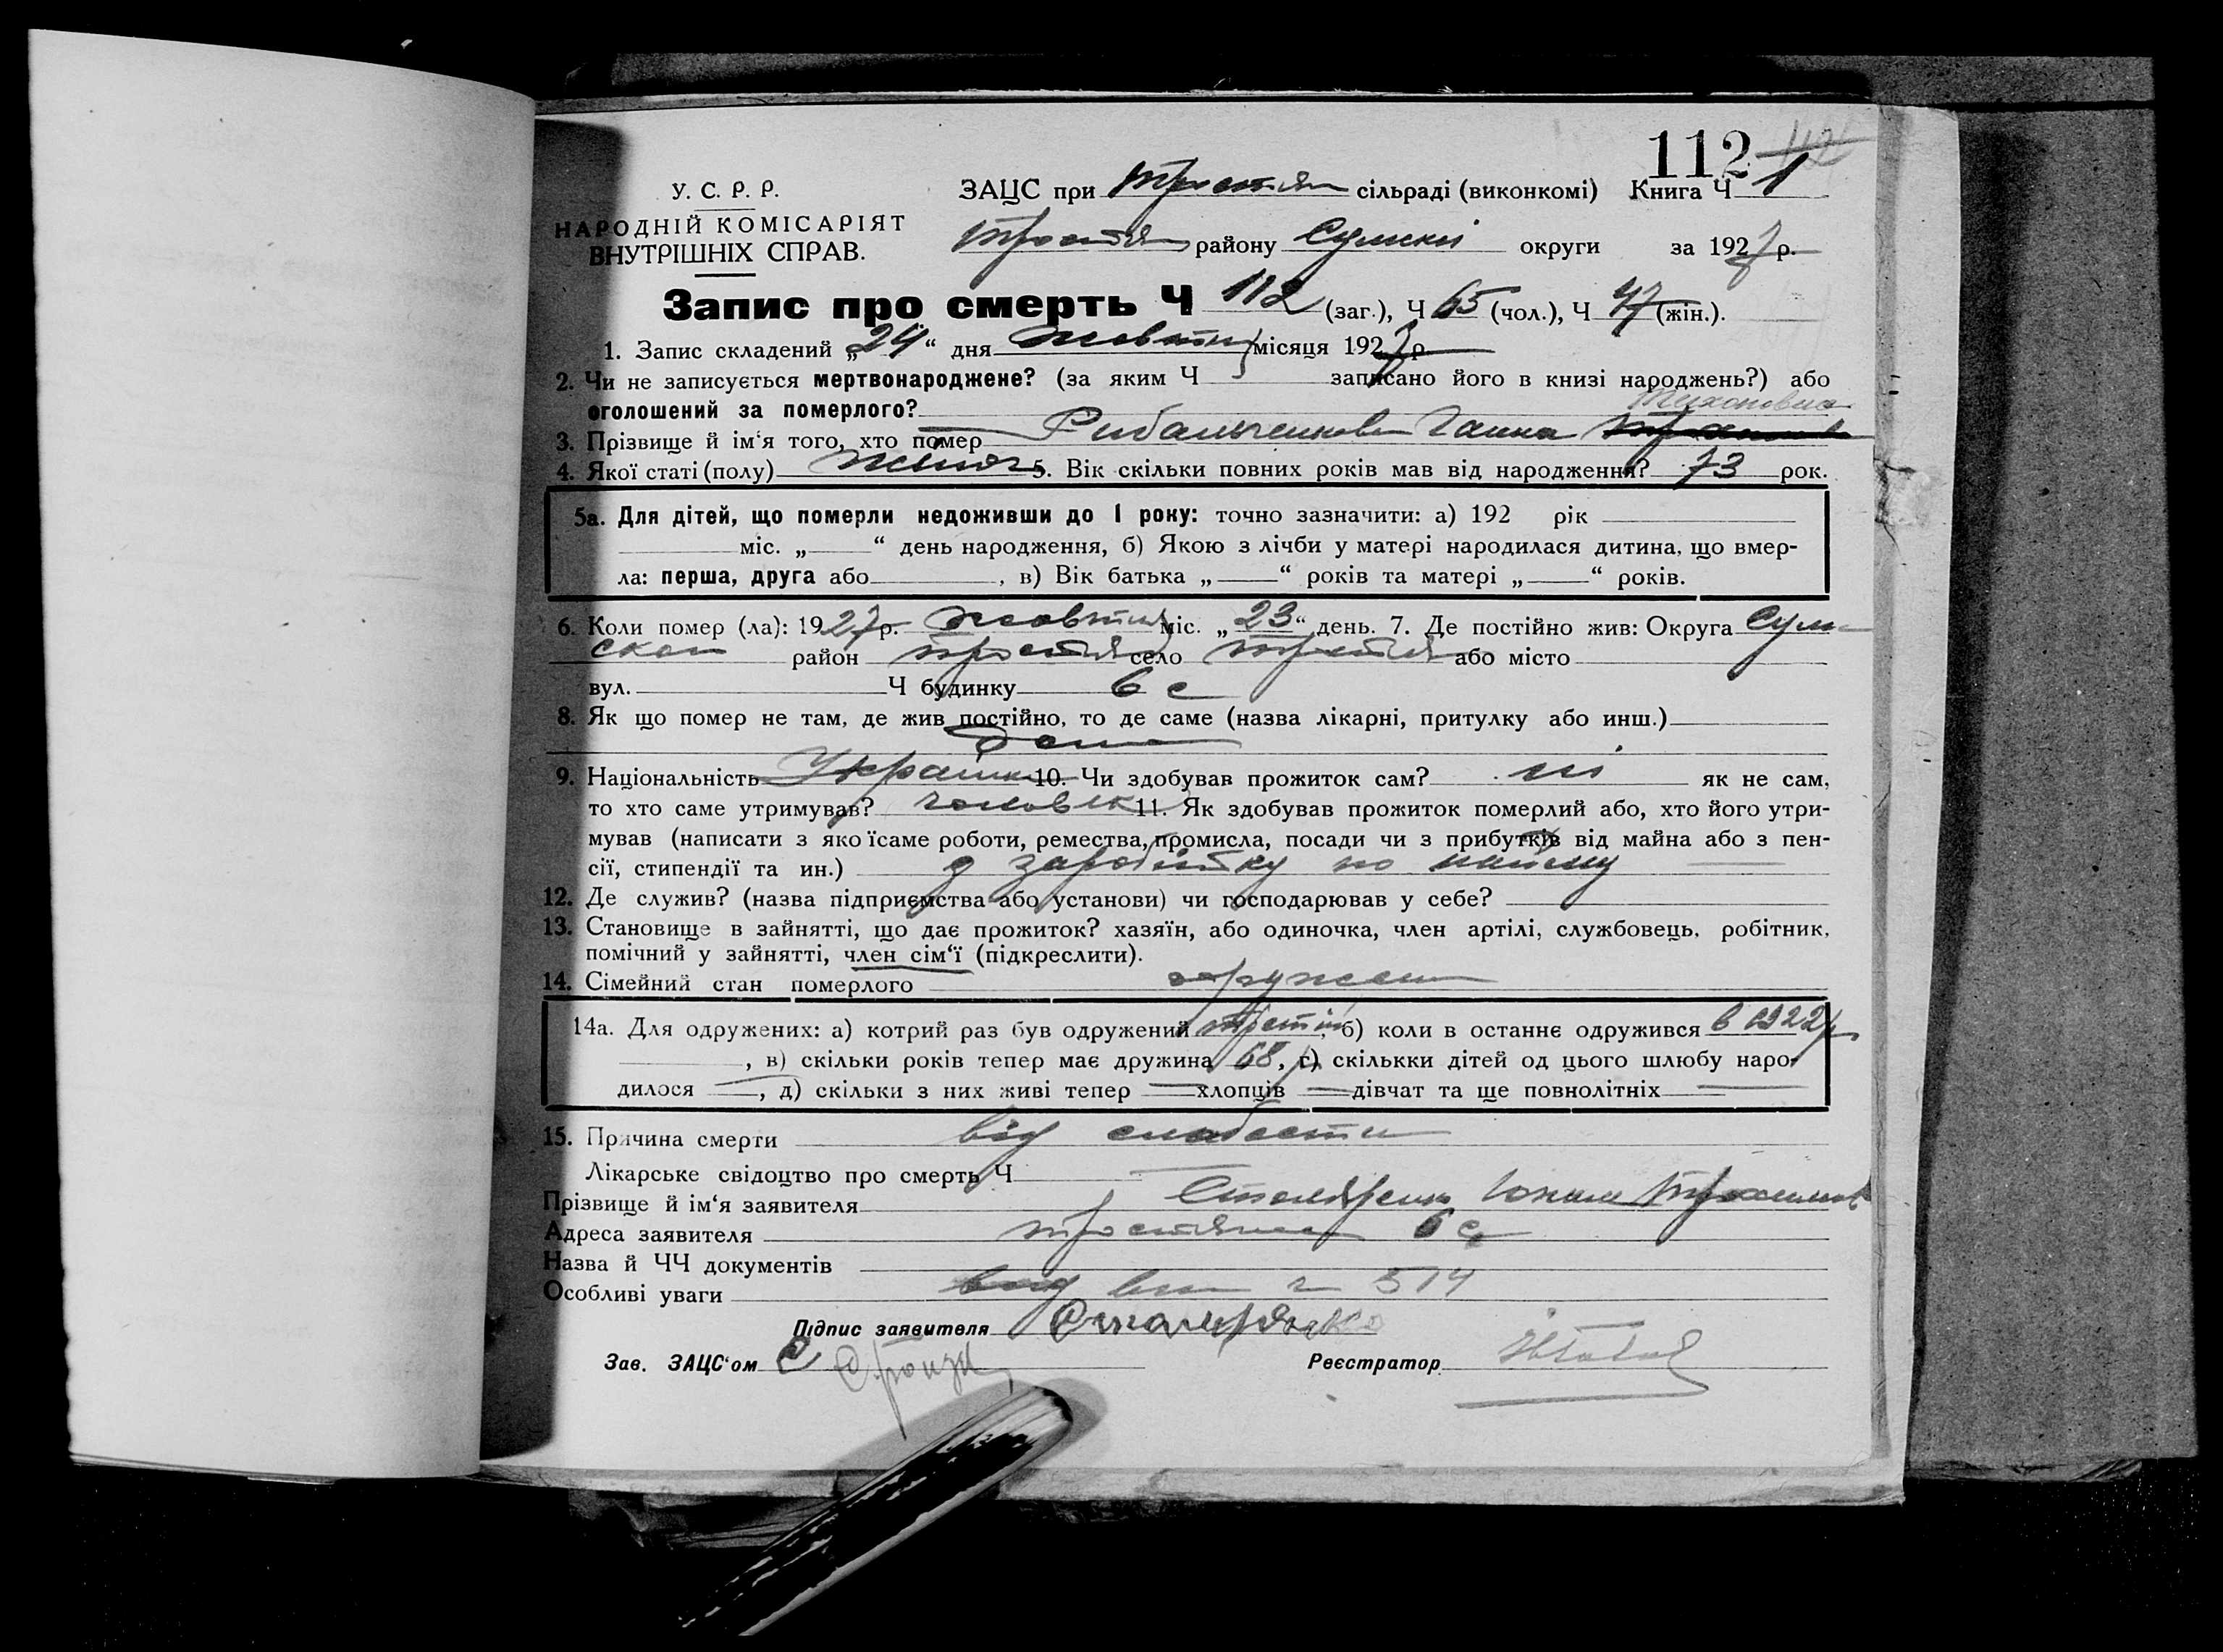 112 112
У. С. Р. Р. ЗАЦС при Тростян сільраді (виконкомі) Книга Ч 1
НАРОДНІЙ КОМІСАРІЯТ
ВНУТРІШНІХ СПРАВ.
Тростян району Сумскої округи за 1927 р.
Запис про смерть Ч 112 (заг.), Ч 65 (чол.), Ч 47 (жін.).
1. Запис складений „24“ дня жовтня місяця 1927 р
2. Чи не записується мертвонароджене? (за яким Ч записано його в книзі народжень?) або
оголошений за померлого?
Тихоновна
3. Прізвище й ім‘я того, хто помер Рибальченкова Ганна
4. Якої статі (полу) жіноч 5. Вік скільки повних років мав від народження? 73 рок.
5а. Для дітей, що померли недоживши до 1 року: точно зазначити: а) 192 рік
міс. „ “ день народження, б) Якою з лічби у матері народилася дитина, що вмер-
ла: перша, друга або , в) Вік батька „ “ років та матері „ “ років.
6. Коли помер (ла): 1927р. жовтня міс. „23“ день. 7. Де постійно жив: Округа Сум
ской район Тростян село Тростян або місто
вул. Ч будинку 6 с
8. Як що помер не там, де жив постійно, то де саме (назва лікарні, притулку або инш.)
дома
9. Національність Украинк 10. Чи здобував прожиток сам? ні як не сам,
то хто саме утримував? чоловік 11. Як здобував прожиток померлий або, хто його утри-
мував (написати з яко їсаме роботи, ремества, промисла, посади чи з прибутків від майна або з пен-
сії, стипендії та ин.) з заробітку по найму
12. Де служив? (назва підприємства або установи) чи господарював у себе?
13. Становище в зайнятті, що дає прожиток? хазяїн, або одиночка, член артілі, службовець, робітник,
помічний у зайнятті, член сім‘ї (підкреслити).
14. Сімейний стан померлого
14а. Для одружених: а) котрий раз був одружений б) коли в останнє одружився в 1922 р
, в) скільки років тепер має дружина 68, г) скількки дітей од цього шлюбу наро-
дилося , д) скільки з них живі тепер хлопців дівчат та ще повнолітніх
15. Причина смерти від слабости
Лікарське свідоцтво про смерть Ч
Прізвище й ім‘я заявителя Столяренко Трохимов
Адреса заявителя Тростянец 6 с
Назва й ЧЧ документів
Особливі уваги 514
Підпис заявителя Столяренко
Зав. ЗАЦС‘ом Реєстратор